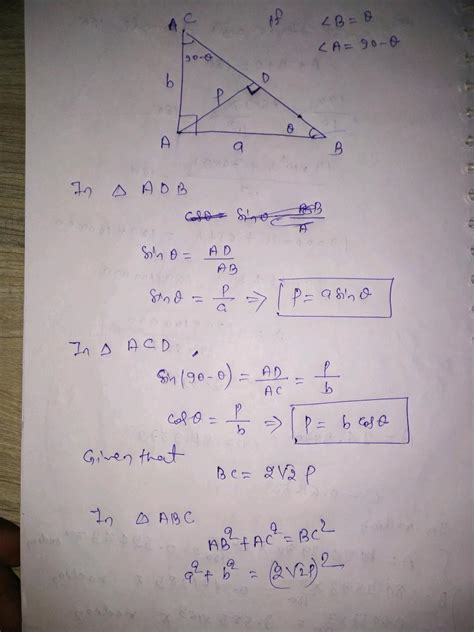 A C
If ∠B = θ
∠A = 90-θ
90-θ
b
D
P
θ
A
a
B
In △ ADB
sinθ = AD/AB
sinθ = P/a ⇒ P = a sinθ
In △ ACD
sin(90-θ) = AD/AC = P/b
cosθ = P/b ⇒ P = b cosθ
Given that
BC = 2√2 P
In △ ABC
AB² + AC² = BC²
a² + b² = (2√2P)²